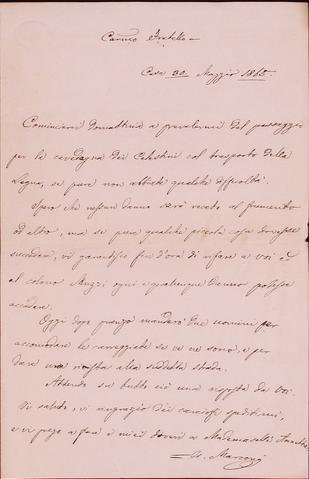 Carissimo Fratello –
Casa 30 Maggio 1865.
Comincierei domattina a prevalermi del passaggio
per la cavedagna dei Celestini col trasporto della
legna, se pure non abbiate qualche difficoltà.
Spero che nessun danno sarà recato al frumento
od altro, ma se pure qualche piccola cosa dovesse
succedere, vi garantisco fin d'ora di rifare a voi ed
al colono ogni e qualunque danno potesse
accadere.
Oggi dopo pranzo manderò due uomini per
accomodare le carreggiate se ve ne sono, e per
dare una vista alla suddetta strada.
Attendo su tutto ciò una risposta da voi.
Vi saluto, vi ringrazio dei carciofi speditimi,
e vi prego a fare i miei doveri a Mademoiselle
Marconi